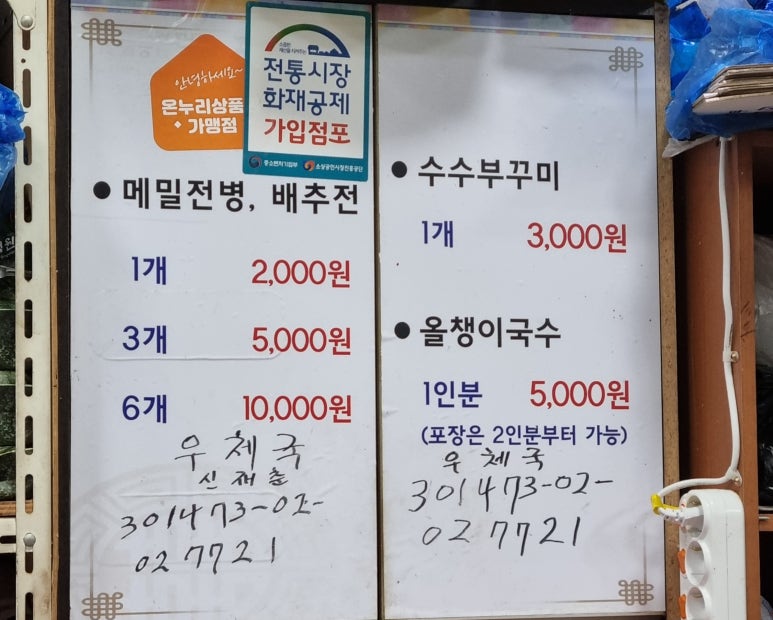 안녕하세요~
온누리상품
가맹점
전통시장
화재공제
가입점포
중소벤처기업부 소상공인시장진흥공단
● 메밀전병, 배추전
1개 2,000원
3개 5,000원
6개 10,000원
우체국
신재춘
301473-02-
027721
● 수수부꾸미
1개 3,000원
● 올챙이국수
1인분 5,000원
(포장은 2인분부터 가능)
우체국
301473-02-
027721